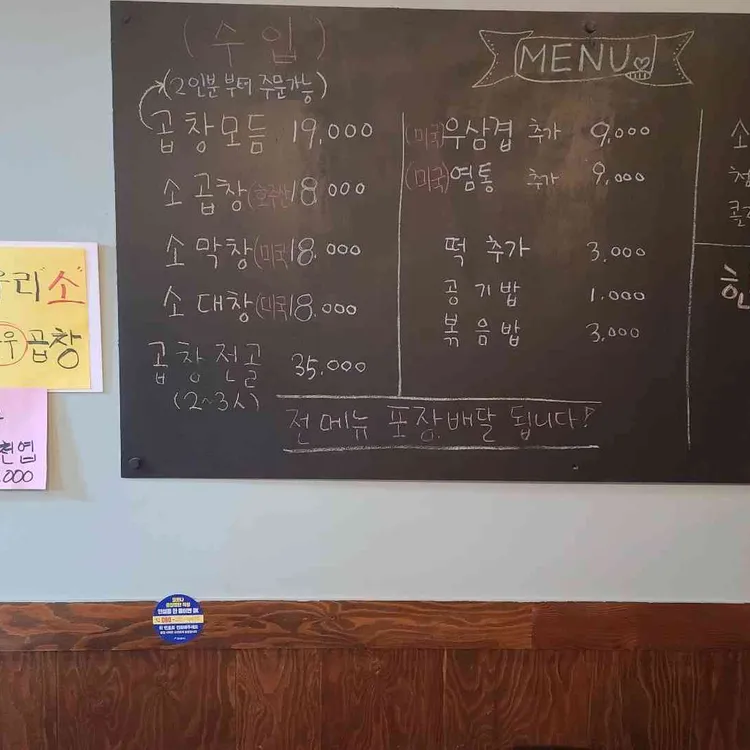 (수입)
(2인분부터 주문가능)
곱창모듬 19,000
소곱창(호주산) 18,000
소막창(미국) 18,000
소대창(미국) 18,000
곱창전골 35,000
(2~3人)
MENU
(미국)우삼겹 추가 9,000
(미국)염통 추가 9,000
떡 추가 3,000
공기밥 1,000
볶음밥 3,000
전메뉴 포장,배달 됩니다!
소
한
우리 소
우 곱창
천엽
,000